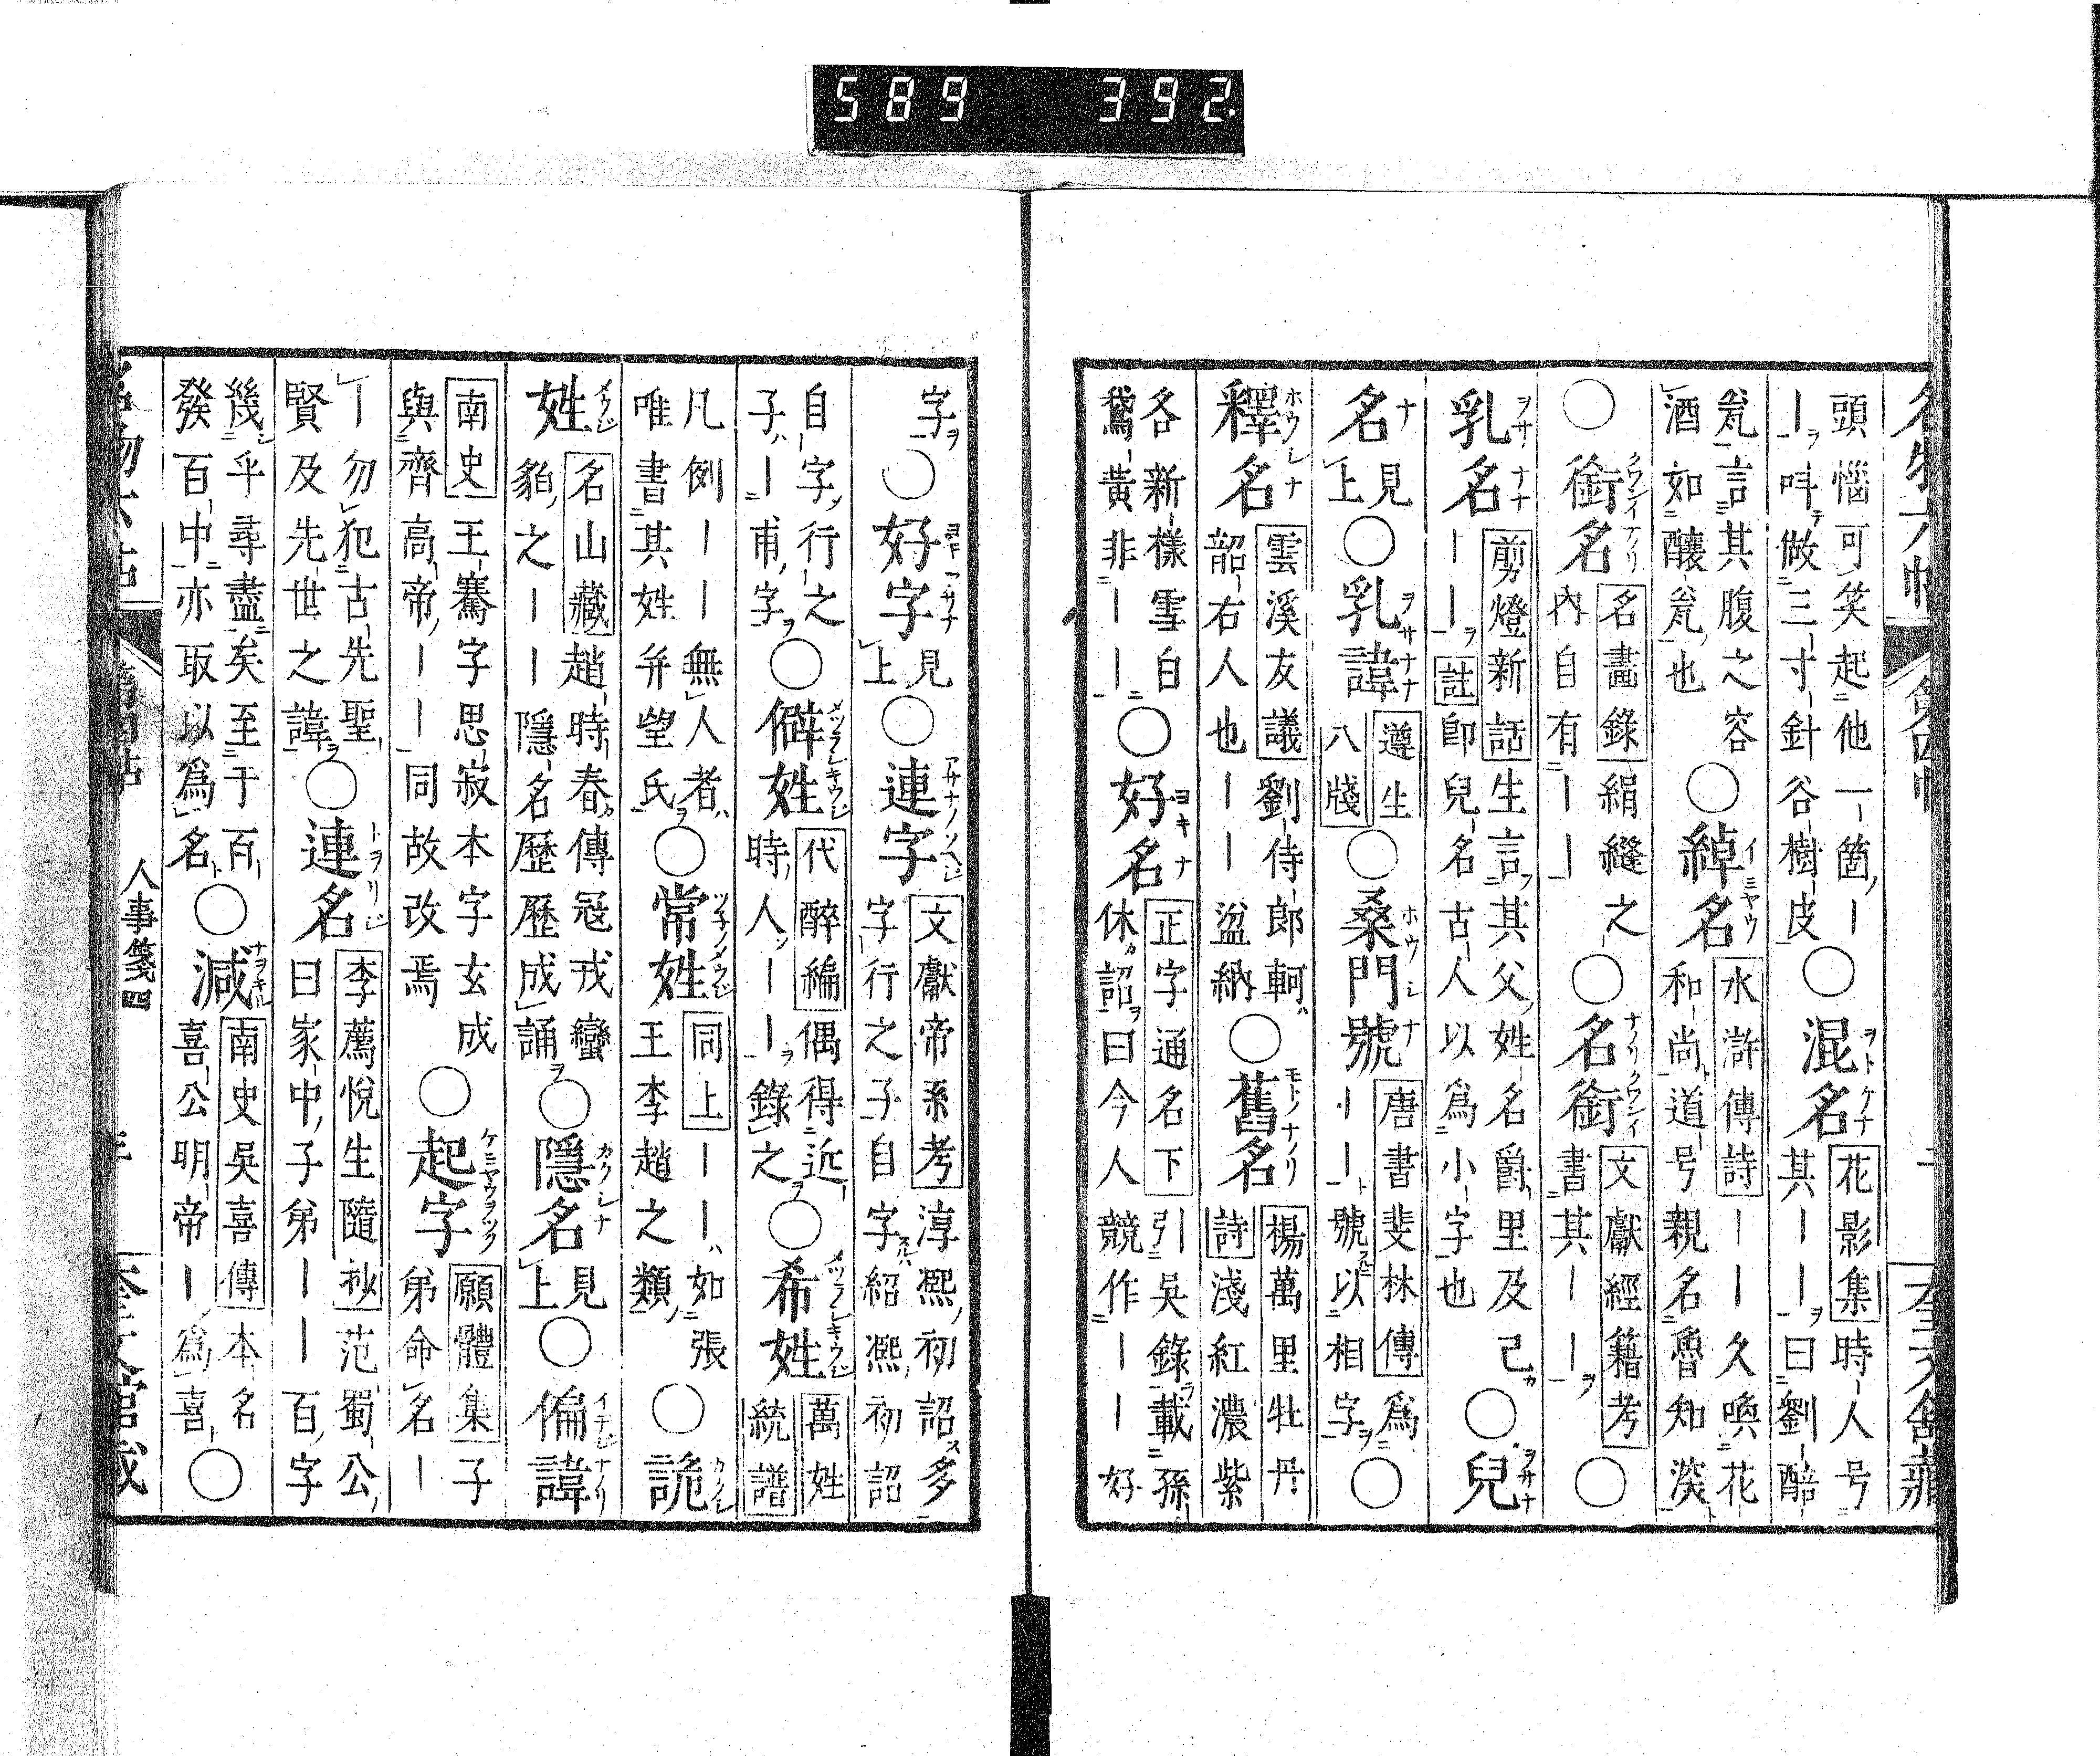 589 392
頭惱可笑起他一箇丨
丨呌做三寸針谷樹皮
〇混名
花影集時人号
其丨丨曰劉酷
瓮言其腹之容
酒如釀瓮也
〇綽名
水滸傳詩丨丨久喚花
和尚道号親名魯知深
〇銜名
名畫錄絹縫之
內自有丨丨
〇名銜
文獻經籍考
書其丨丨
〇
乳名
剪燈新話生言其父姓名爵里及己
丨丨註卽兒名古人以爲小字也
〇兒
名
見
上
〇乳諱
遵生
八牋
〇桑門號
唐書斐林傳爲
丨丨丨號以相字
〇
釋名
雲溪友議劉侍郎軻
韶右人也丨丨盆納
〇舊名
楊萬里牡丹
詩淺紅濃紫
各新樣雪白
鵞黃非丨丨
〇好名
正字通名下引吳錄載孫
休詔曰今人競作丨丨好
字
〇好字
見
上
〇連字
文獻帝系考淳熙初詔多
字行之子自字紹熙初詔
自字行之
子丨甫字
〇僻姓
代醉編偶得近
時人丨丨錄之
〇希姓
萬姓
統譜
凡例丨丨無人者
唯書其姓幷望氏
〇常姓
同上丨丨如張
王李趙之類
〇詭
姓
名山藏趙時春傳冦戎蠻
貊之丨丨隱名歷歷成誦
〇隱名
見
上
〇偏諱
南史王騫字思寂本字玄成
與齊高帝丨丨同故改焉
〇起字
願體集子
弟命名丨
丨勿犯古先聖
賢及先世之諱
〇連名
李薦悅生隨抄范蜀公
曰家中子弟丨丨百字
幾乎尋盡矣至于百
發百中亦取以爲名
〇減
南史吳喜傳本名
喜公明帝丨爲喜
〇
人事箋四